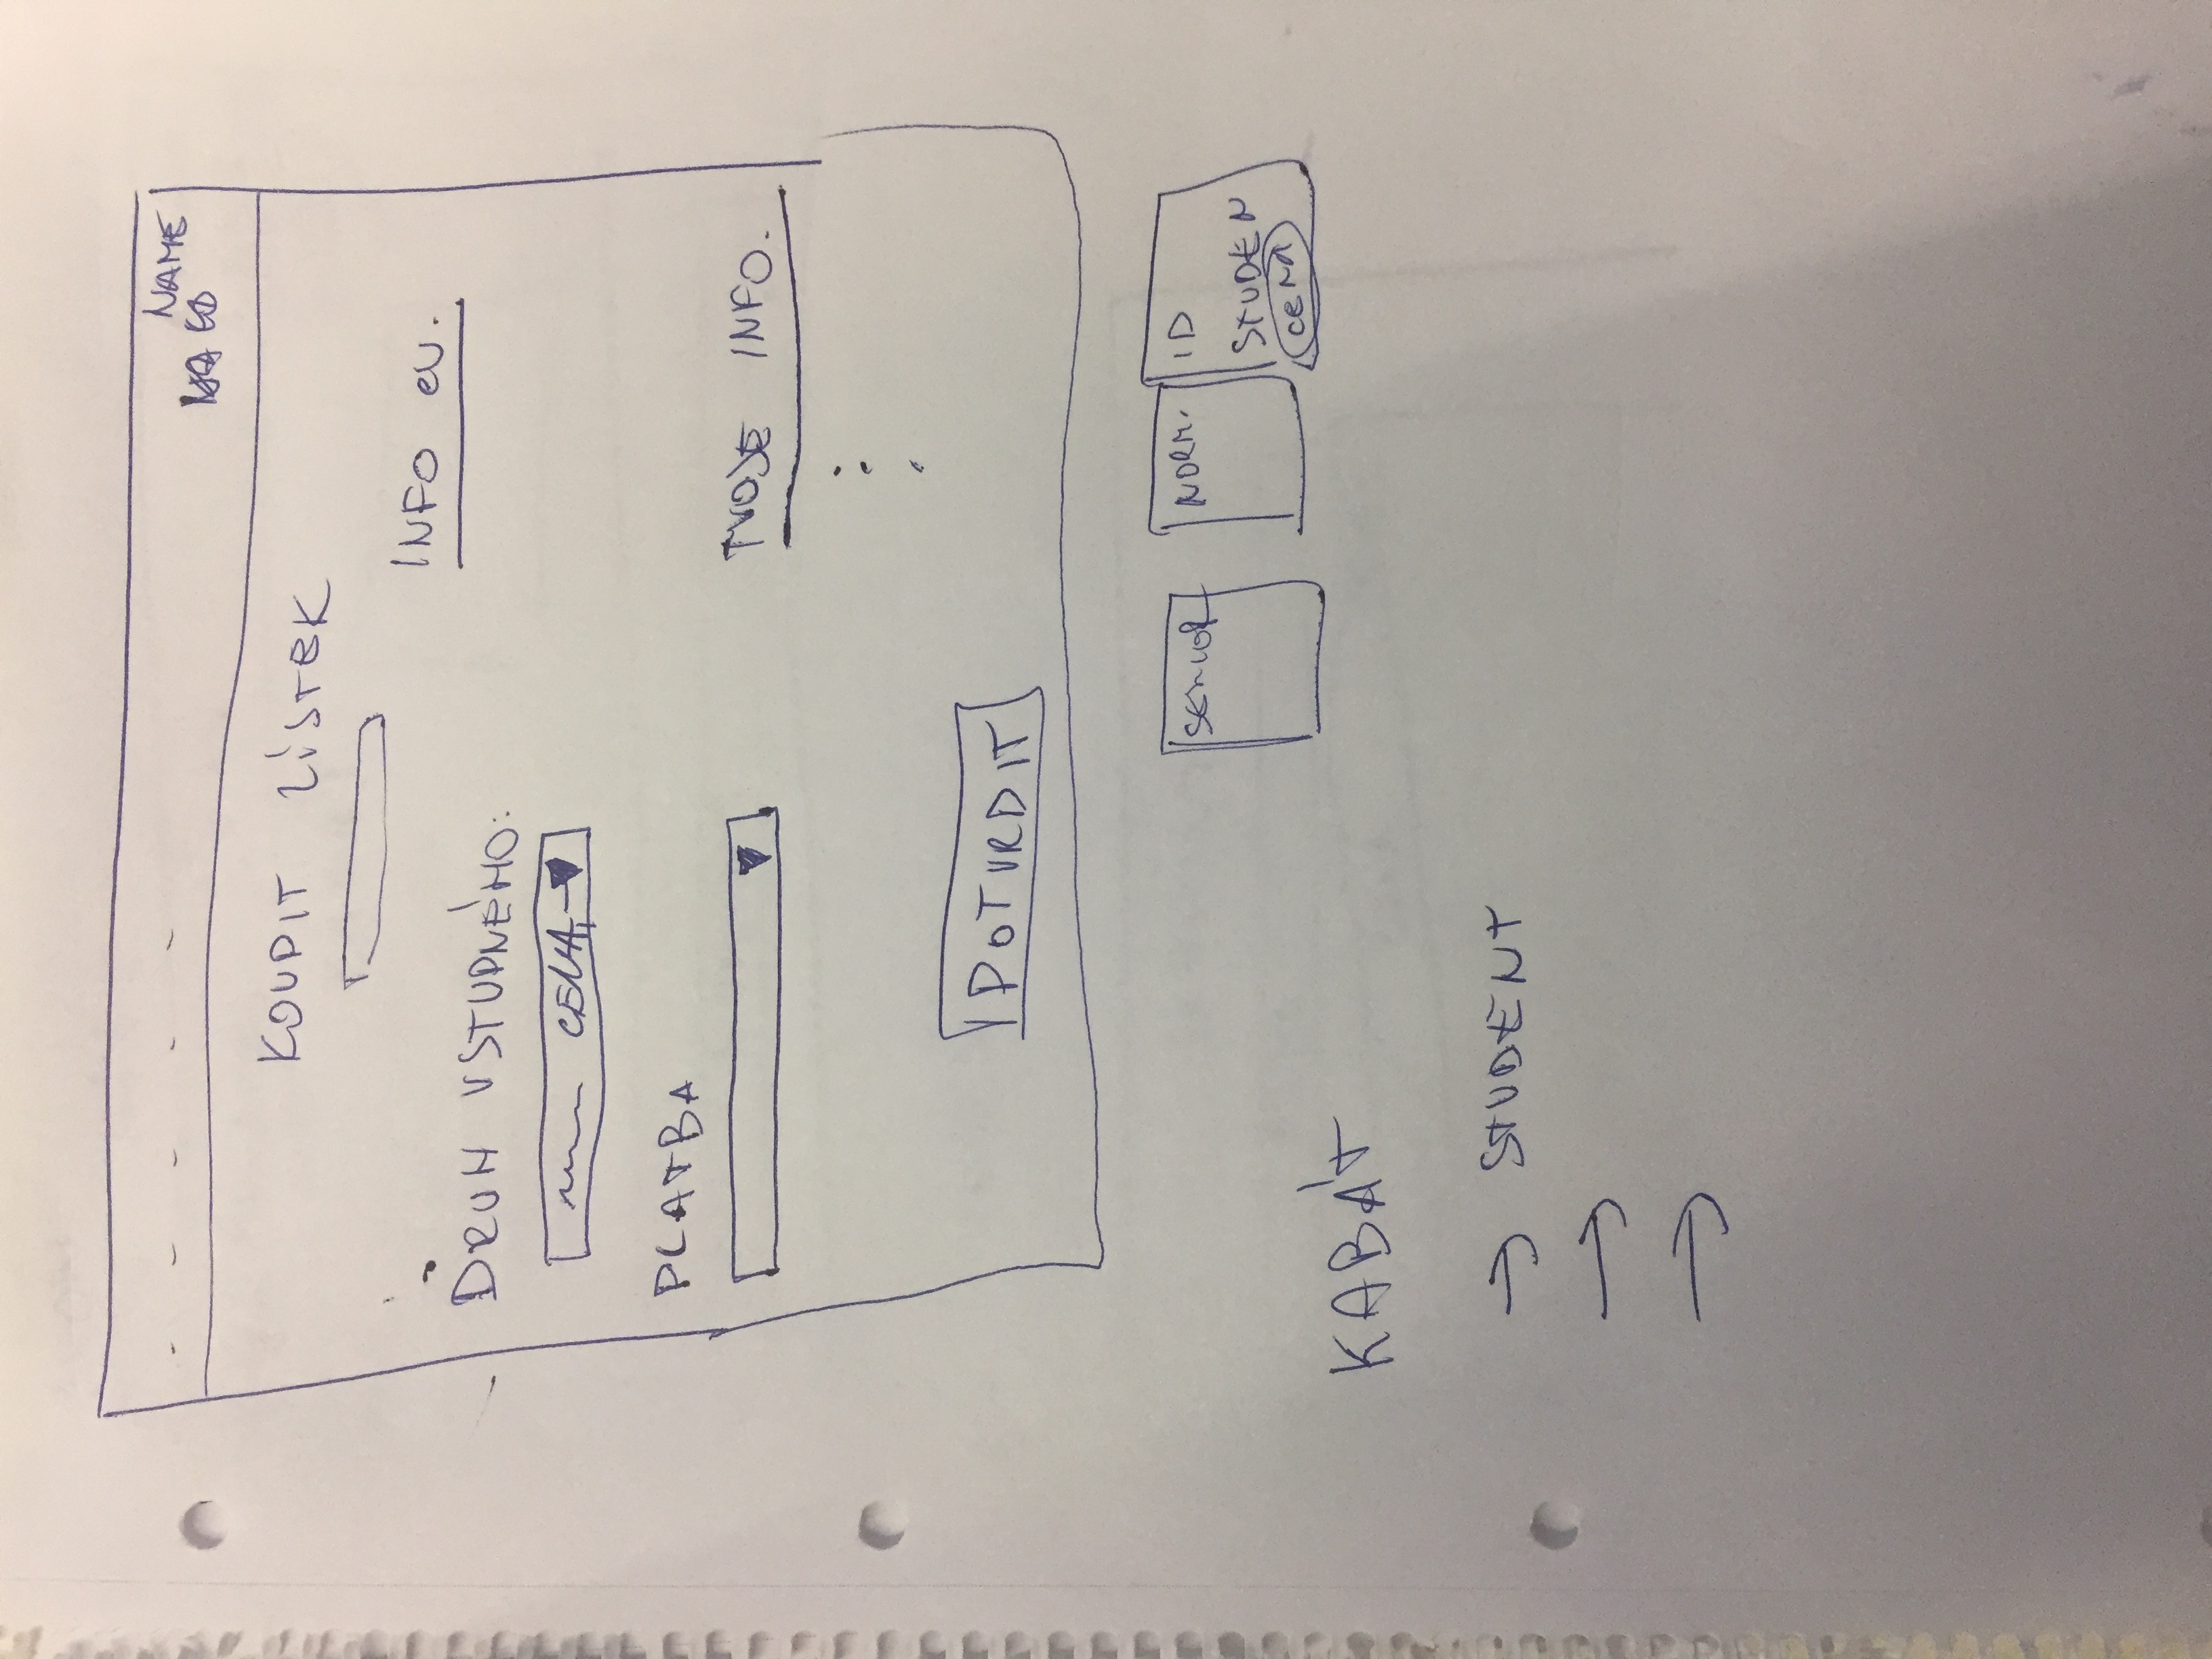 NAME
KOUPIT LÍSTEK
INFO EV.
DRUH VSTUPNÉHO:
CENA
PLATBA
TVOJE INFO.
POTVRDIT
SENIOR
NORM.
ID
STUDEN
CENA
KABÁT
→ STUDENT
→
→